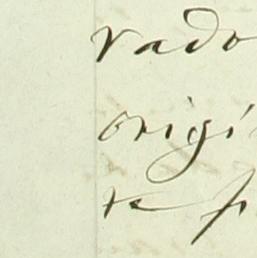 vado
origi
te p